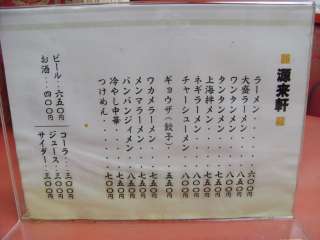 源来軒
ラーメン・・・六〇〇円
大盛ラーメン・・・七〇〇円
ワンタンメン・・・七五〇円
タンタンメン・・・七五〇円
上海拌メン・・・七五〇円
ネギラーメン・・・八〇〇円
チャーシューメン・・・八〇〇円
ギョウザ(餃子)・・・五五〇円
ワカメラーメン・・・七五〇円
メンマラーメン・・・七五〇円
バンバンジィメン・・・七五〇円
冷やし中華・・・七五〇円
つけめん・・・七〇〇円
ビール・・・六五〇円
お酒・・・四〇〇円
コーラ・・・三〇〇円
ジュース・・・三〇〇円
サイダー・・・三〇〇円